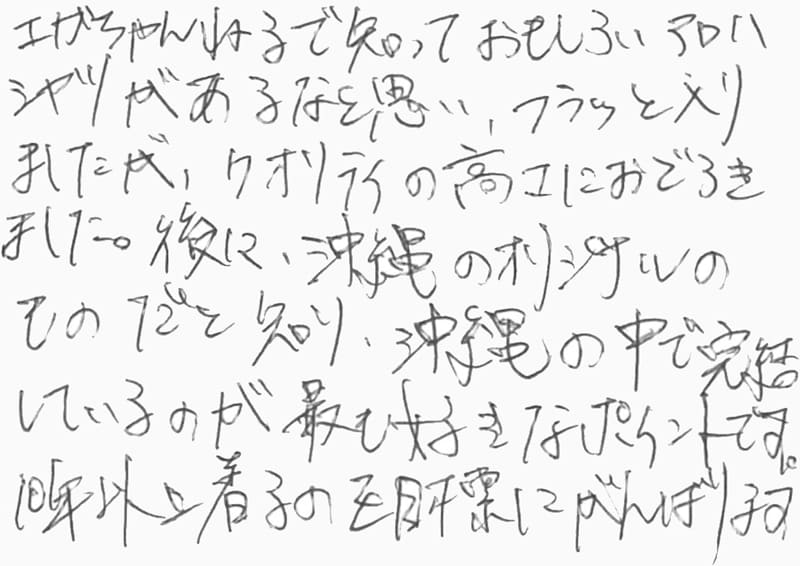 エガちゃんねるで知っておもしろいアロハ
シャツがあるなと思い、フラッと入り
ましたが、クオリティの高エにおどろき
ました。後に、沖縄のオリジナルの
ものだと知り、沖縄の中で完結
しているのが最も好きなポイントです。
10年以上着るのを目標にがんばります